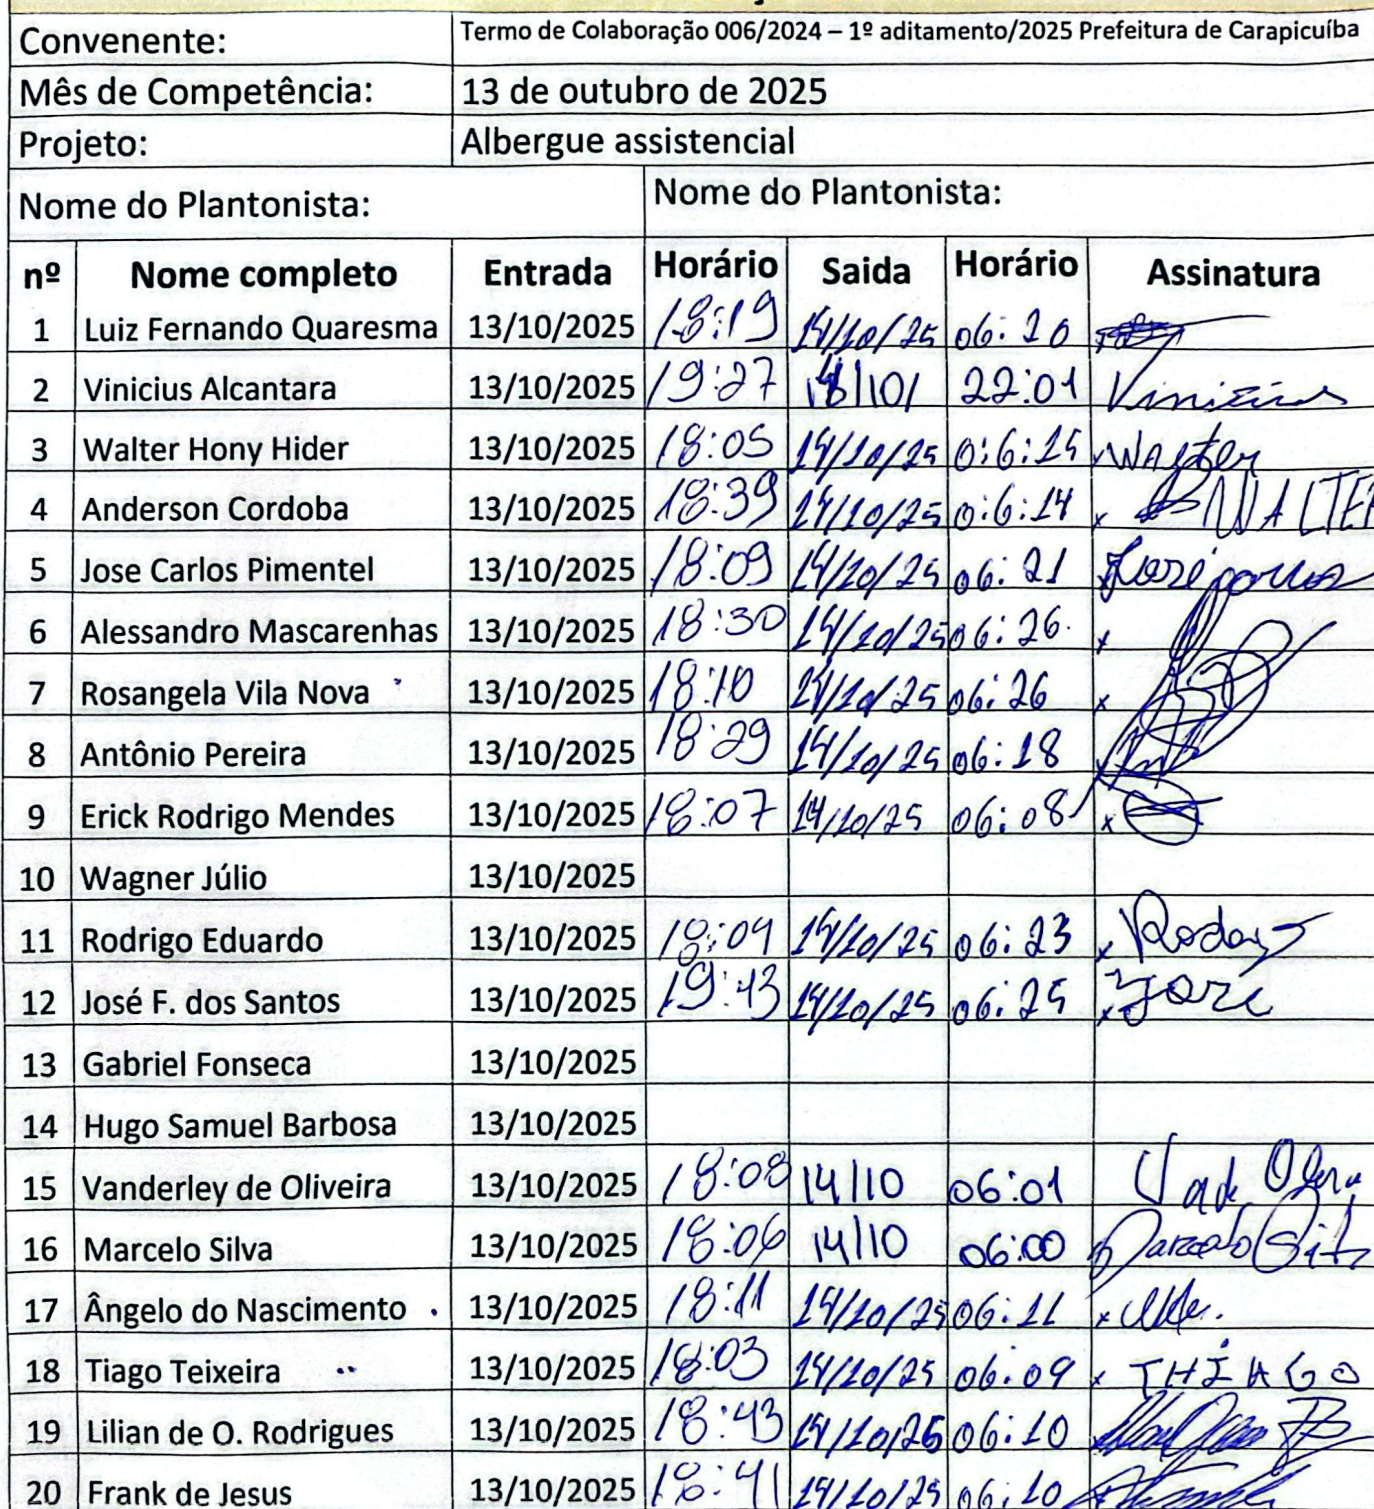 Convenente: Termo de Colaboração 006/2024 – 1º aditamento/2025 Prefeitura de Carapicuíba
Mês de Competência: 13 de outubro de 2025
Projeto: Albergue assistencial
Nome do Plantonista: Nome do Plantonista:
nº Nome completo Entrada Horário Saida Horário Assinatura
1 Luiz Fernando Quaresma 13/10/2025 18:19 14/10/25 06:20
2 Vinicius Alcantara 13/10/2025 19:27 /10/ 22:01 Vinicius
3 Walter Hony Hider 13/10/2025 18:05 14/10/25 0:6:15 x Walter
4 Anderson Cordoba 13/10/2025 18:39 14/10/25 0:6:14 x WALTER
5 Jose Carlos Pimentel 13/10/2025 18:09 14/10/25 06:21
6 Alessandro Mascarenhas 13/10/2025 18:30 14/10/25 06:26 x
7 Rosangela Vila Nova 13/10/2025 18:10 14/10/25 06:26 x
8 Antônio Pereira 13/10/2025 18:29 14/10/25 06:18 x
9 Erick Rodrigo Mendes 13/10/2025 18:07 14/10/25 06:08 x
10 Wagner Júlio 13/10/2025
11 Rodrigo Eduardo 13/10/2025 18:09 14/10/25 06:23 x
12 José F. dos Santos 13/10/2025 19:43 14/10/25 06:25 x Jose
13 Gabriel Fonseca 13/10/2025
14 Hugo Samuel Barbosa 13/10/2025
15 Vanderley de Oliveira 13/10/2025 18:08 14/10 06:01
16 Marcelo Silva 13/10/2025 18:06 14/10 06:00 Marcelo Silva
17 Ângelo do Nascimento 13/10/2025 18:11 14/10/25 06:11 x
18 Tiago Teixeira 13/10/2025 18:03 14/10/25 06:09 x THIAGO
19 Lilian de O. Rodrigues 13/10/2025 18:43 14/10/25 06:10
20 Frank de Jesus 13/10/2025 18:41 14/10/25 06:10